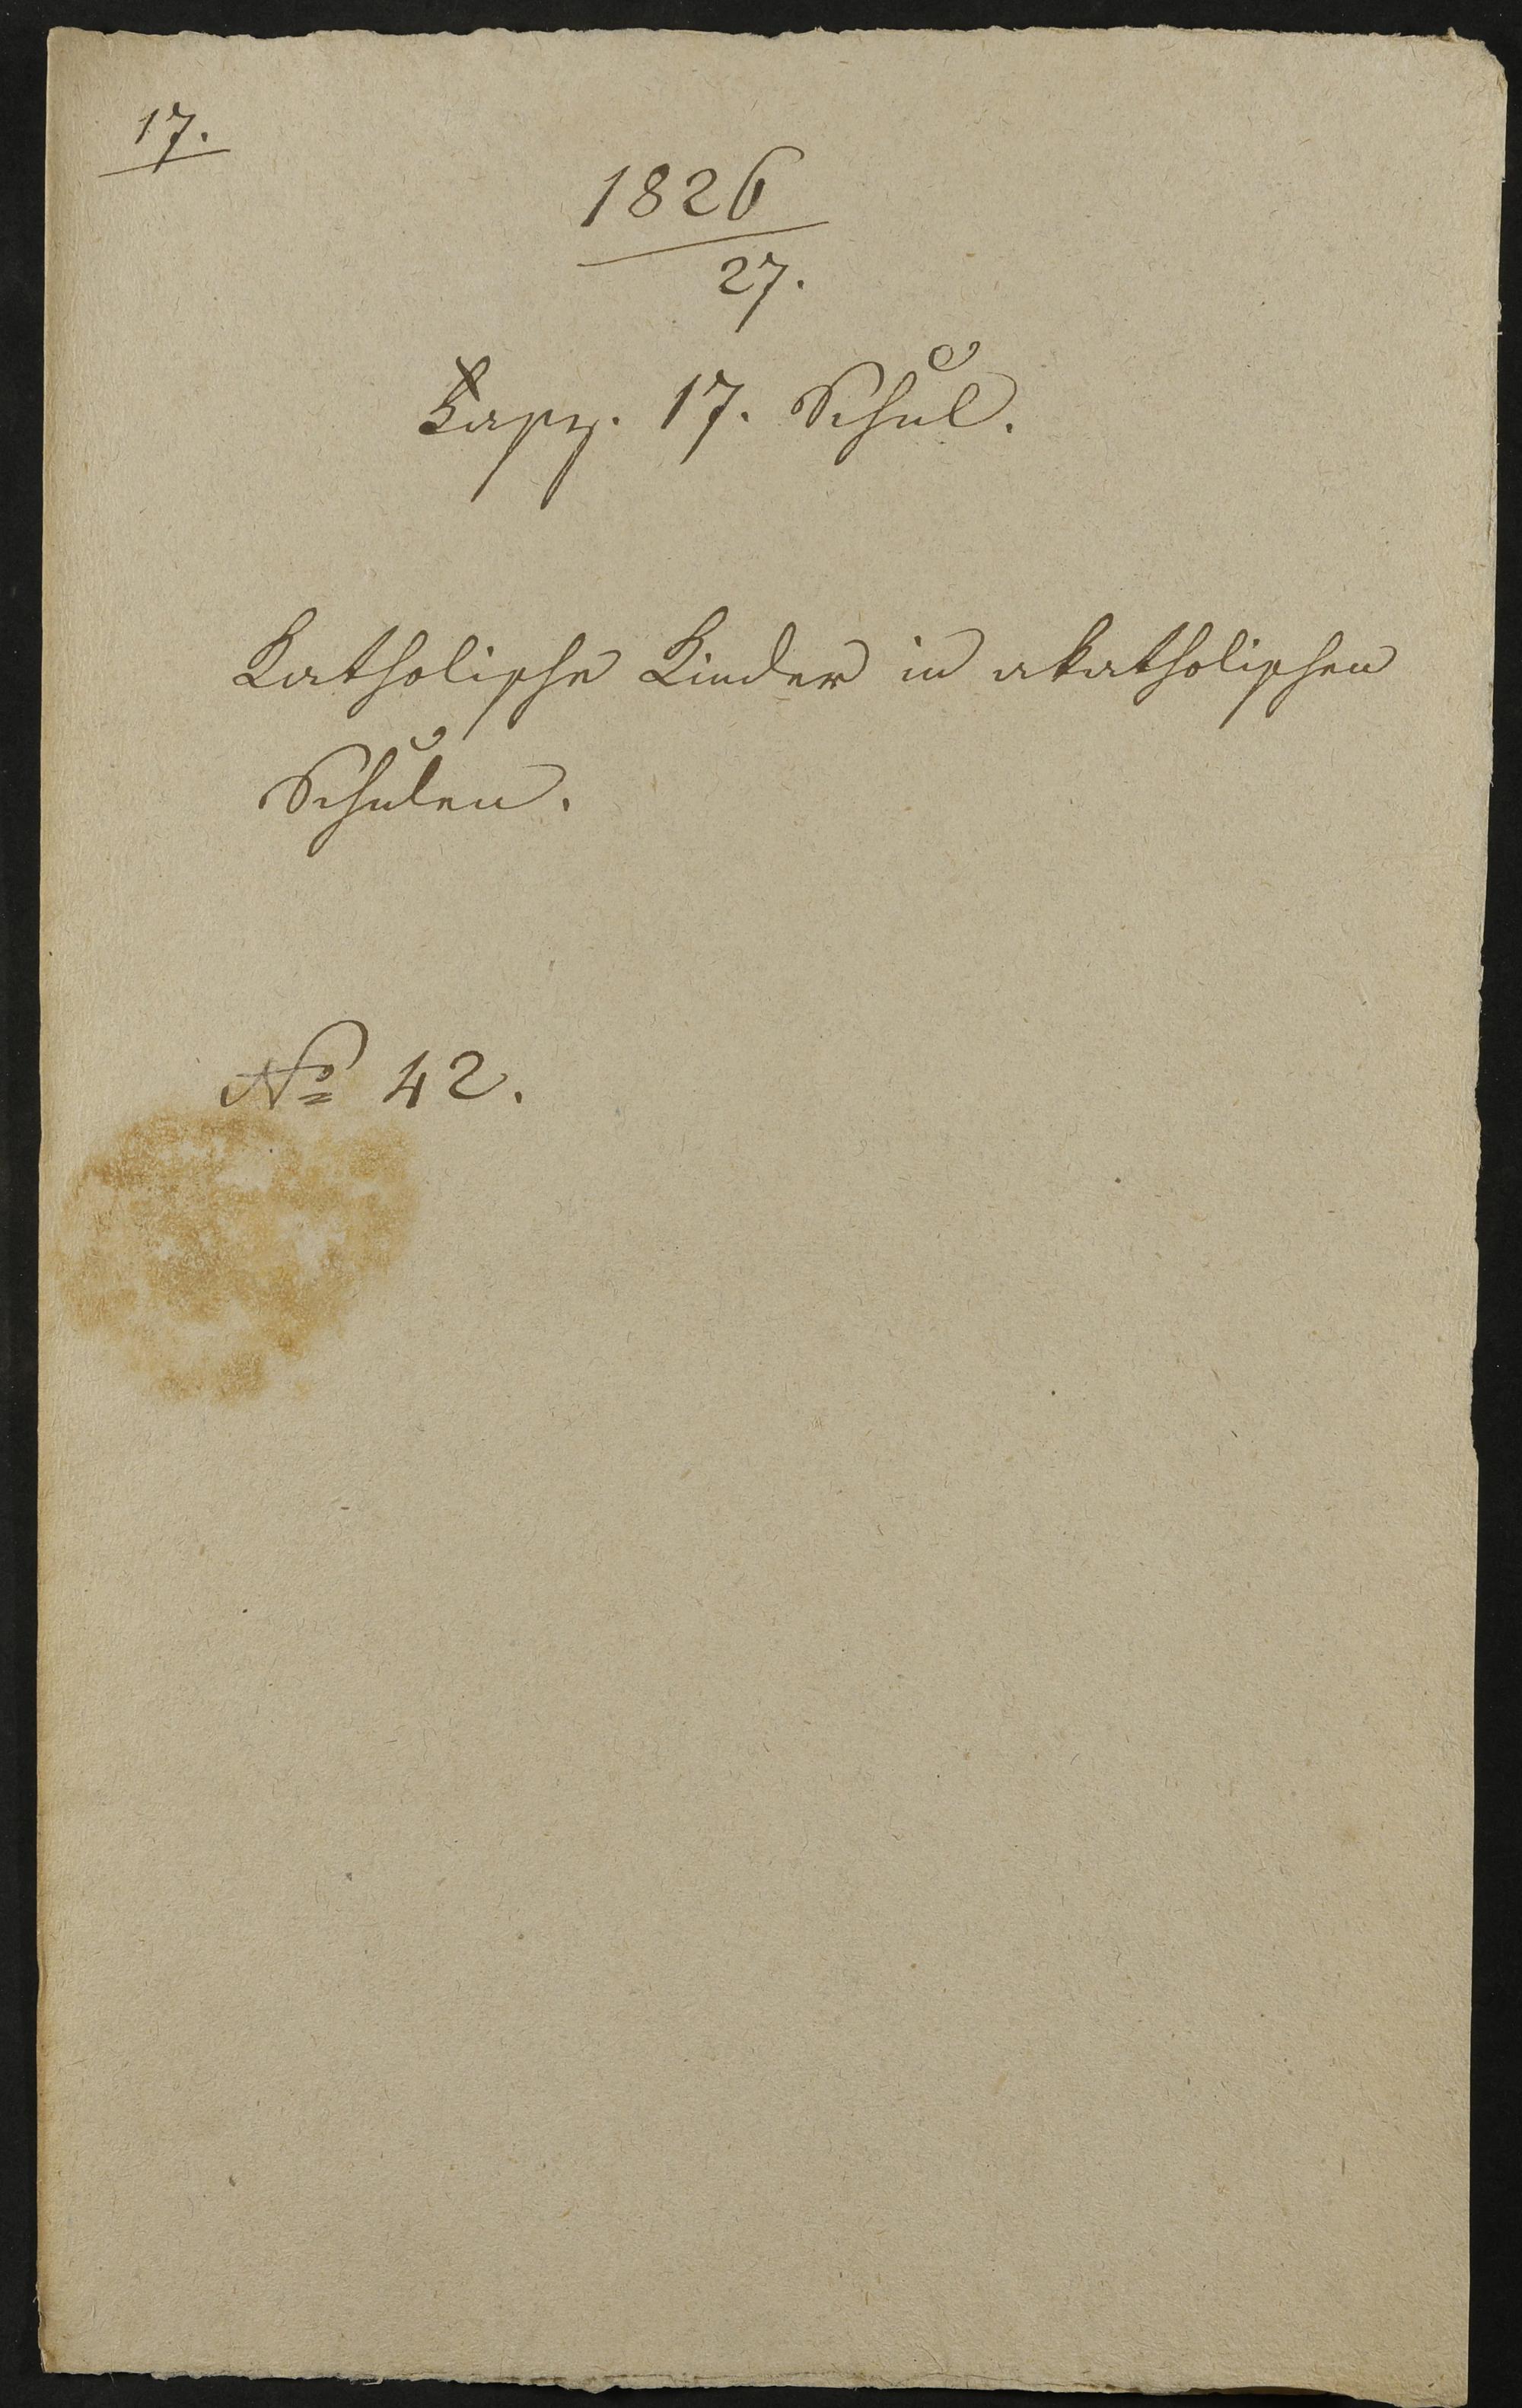 17.
1826
27.
Kapp. 17. Schul.
Katholische Kinder in akatholischen
Schulen.
No 42.